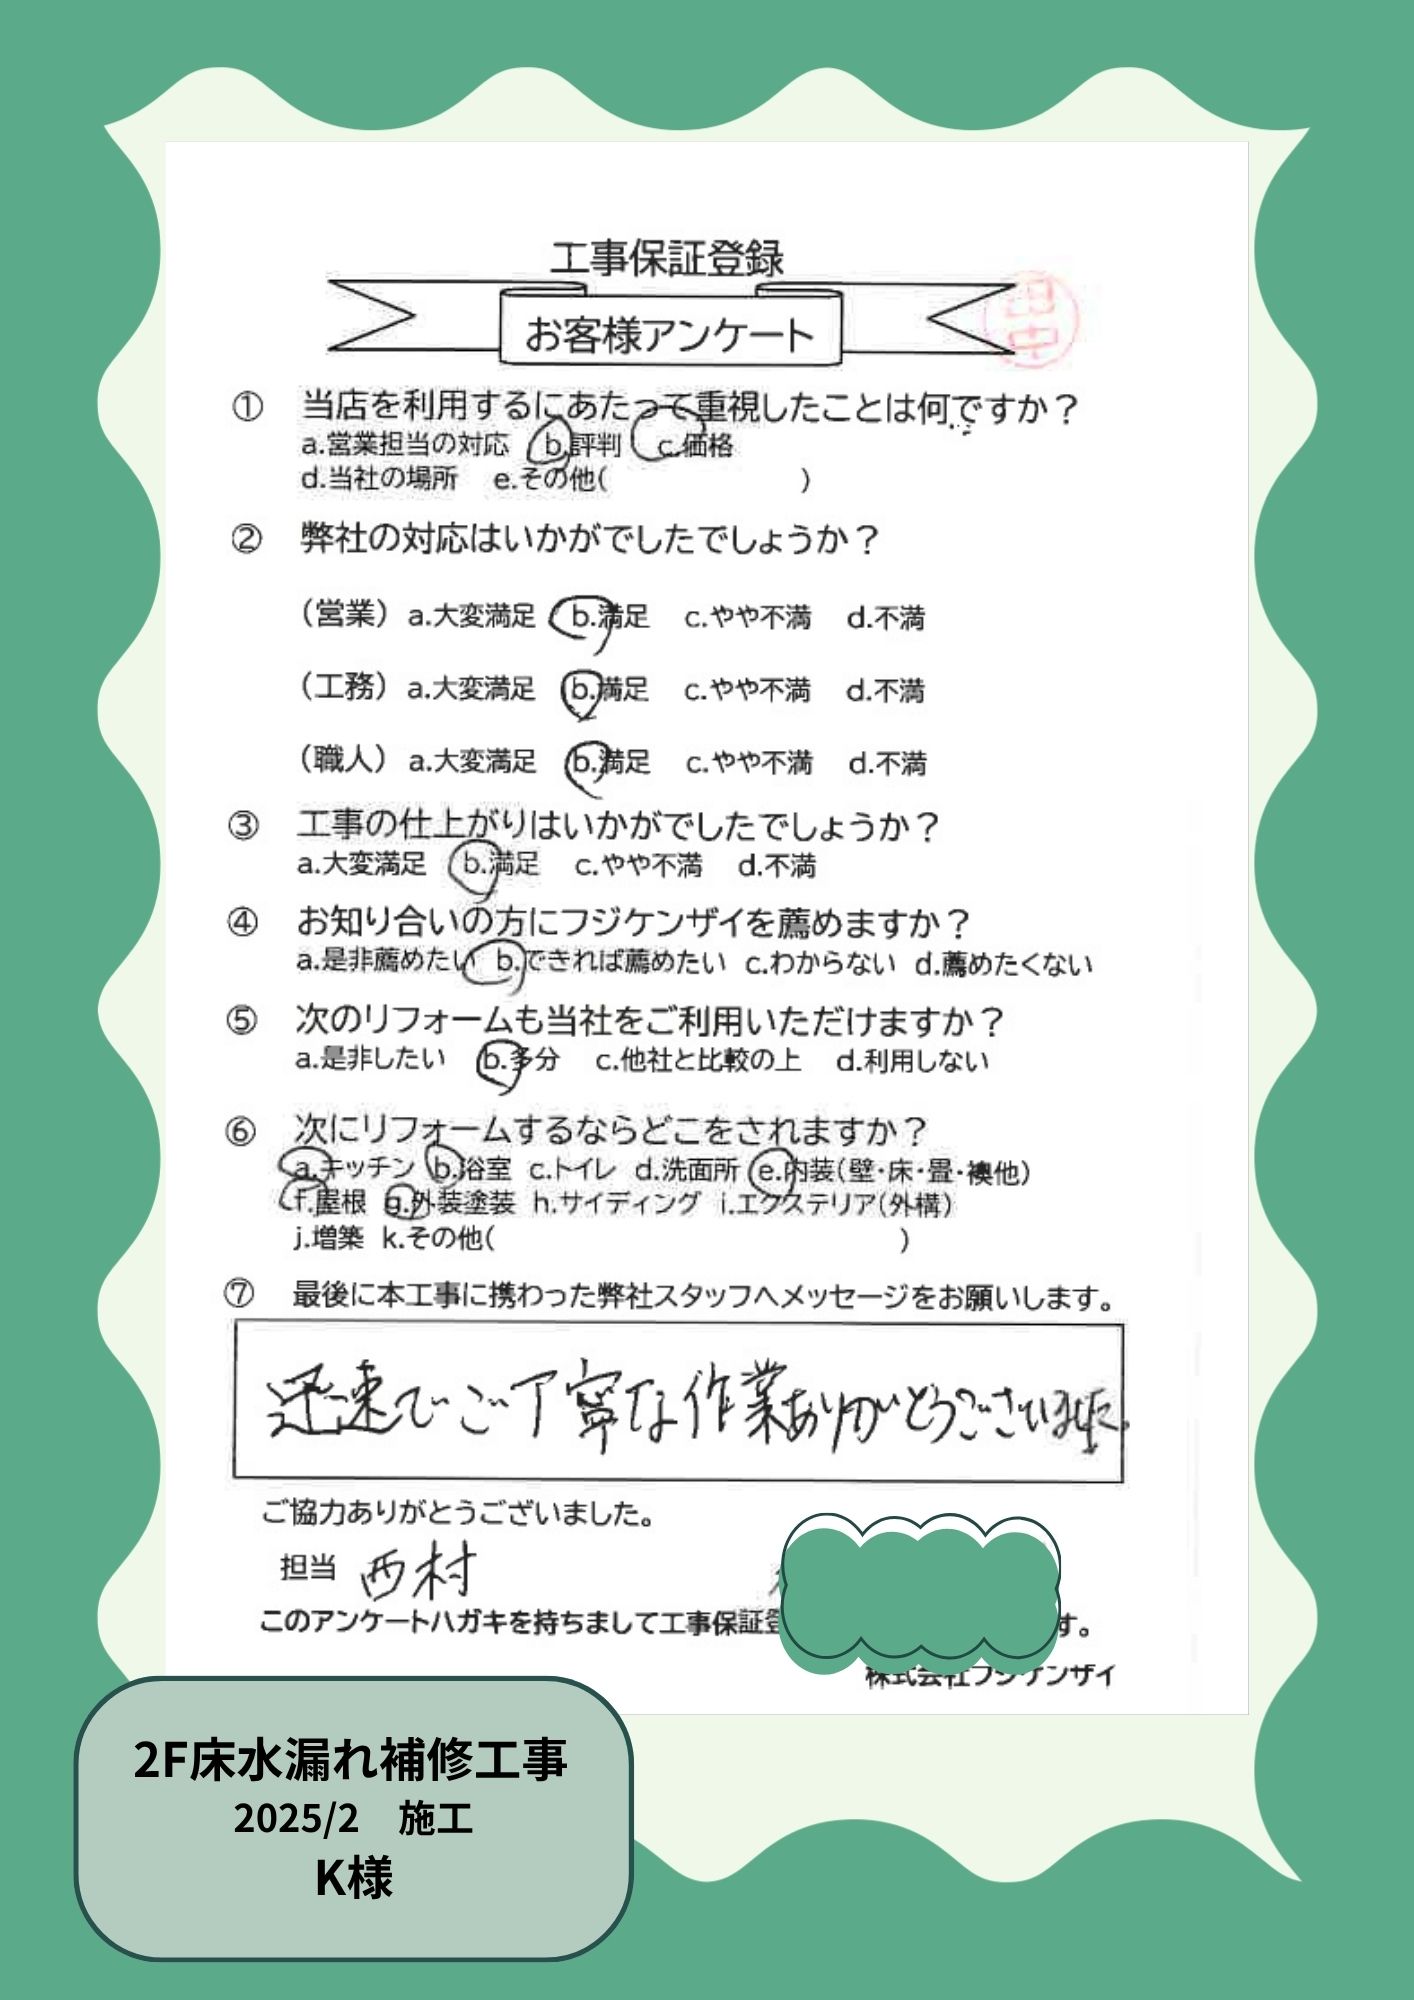 工事保証登録
お客様アンケート
田中
① 当店を利用するにあたって重視したことは何ですか？
a.営業担当の対応 b.評判 c.価格
d.当社の場所 e.その他( )
② 弊社の対応はいかがでしたでしょうか？
（営業） a.大変満足 b.満足 c.やや不満 d.不満
（工務） a.大変満足 b.満足 c.やや不満 d.不満
（職人） a.大変満足 b.満足 c.やや不満 d.不満
③ 工事の仕上がりはいかがでしたでしょうか？
a.大変満足 b.満足 c.やや不満 d.不満
④ お知り合いの方にフジケンザイを薦めますか？
a.是非薦めたい b.できれば薦めたい c.わからない d.薦めたくない
⑤ 次のリフォームも当社をご利用いただけますか？
a.是非したい b.多分 c.他社と比較の上 d.利用しない
⑥ 次にリフォームするならどこをされますか？
a.キッチン b.浴室 c.トイレ d.洗面所 e.内装(壁・床・畳・襖他)
f.屋根 g.外装塗装 h.サイディング i.エクステリア(外構)
j.増築 k.その他( )
⑦ 最後に本工事に携わった弊社スタッフへメッセージをお願いします。
迅速でご丁寧な作業ありがとうございました。
ご協力ありがとうございました。
担当 西村
このアンケートハガキを持ちまして工事保証登 す。
株式会社フジケンザイ
2F床水漏れ補修工事
2025/2 施工
K様